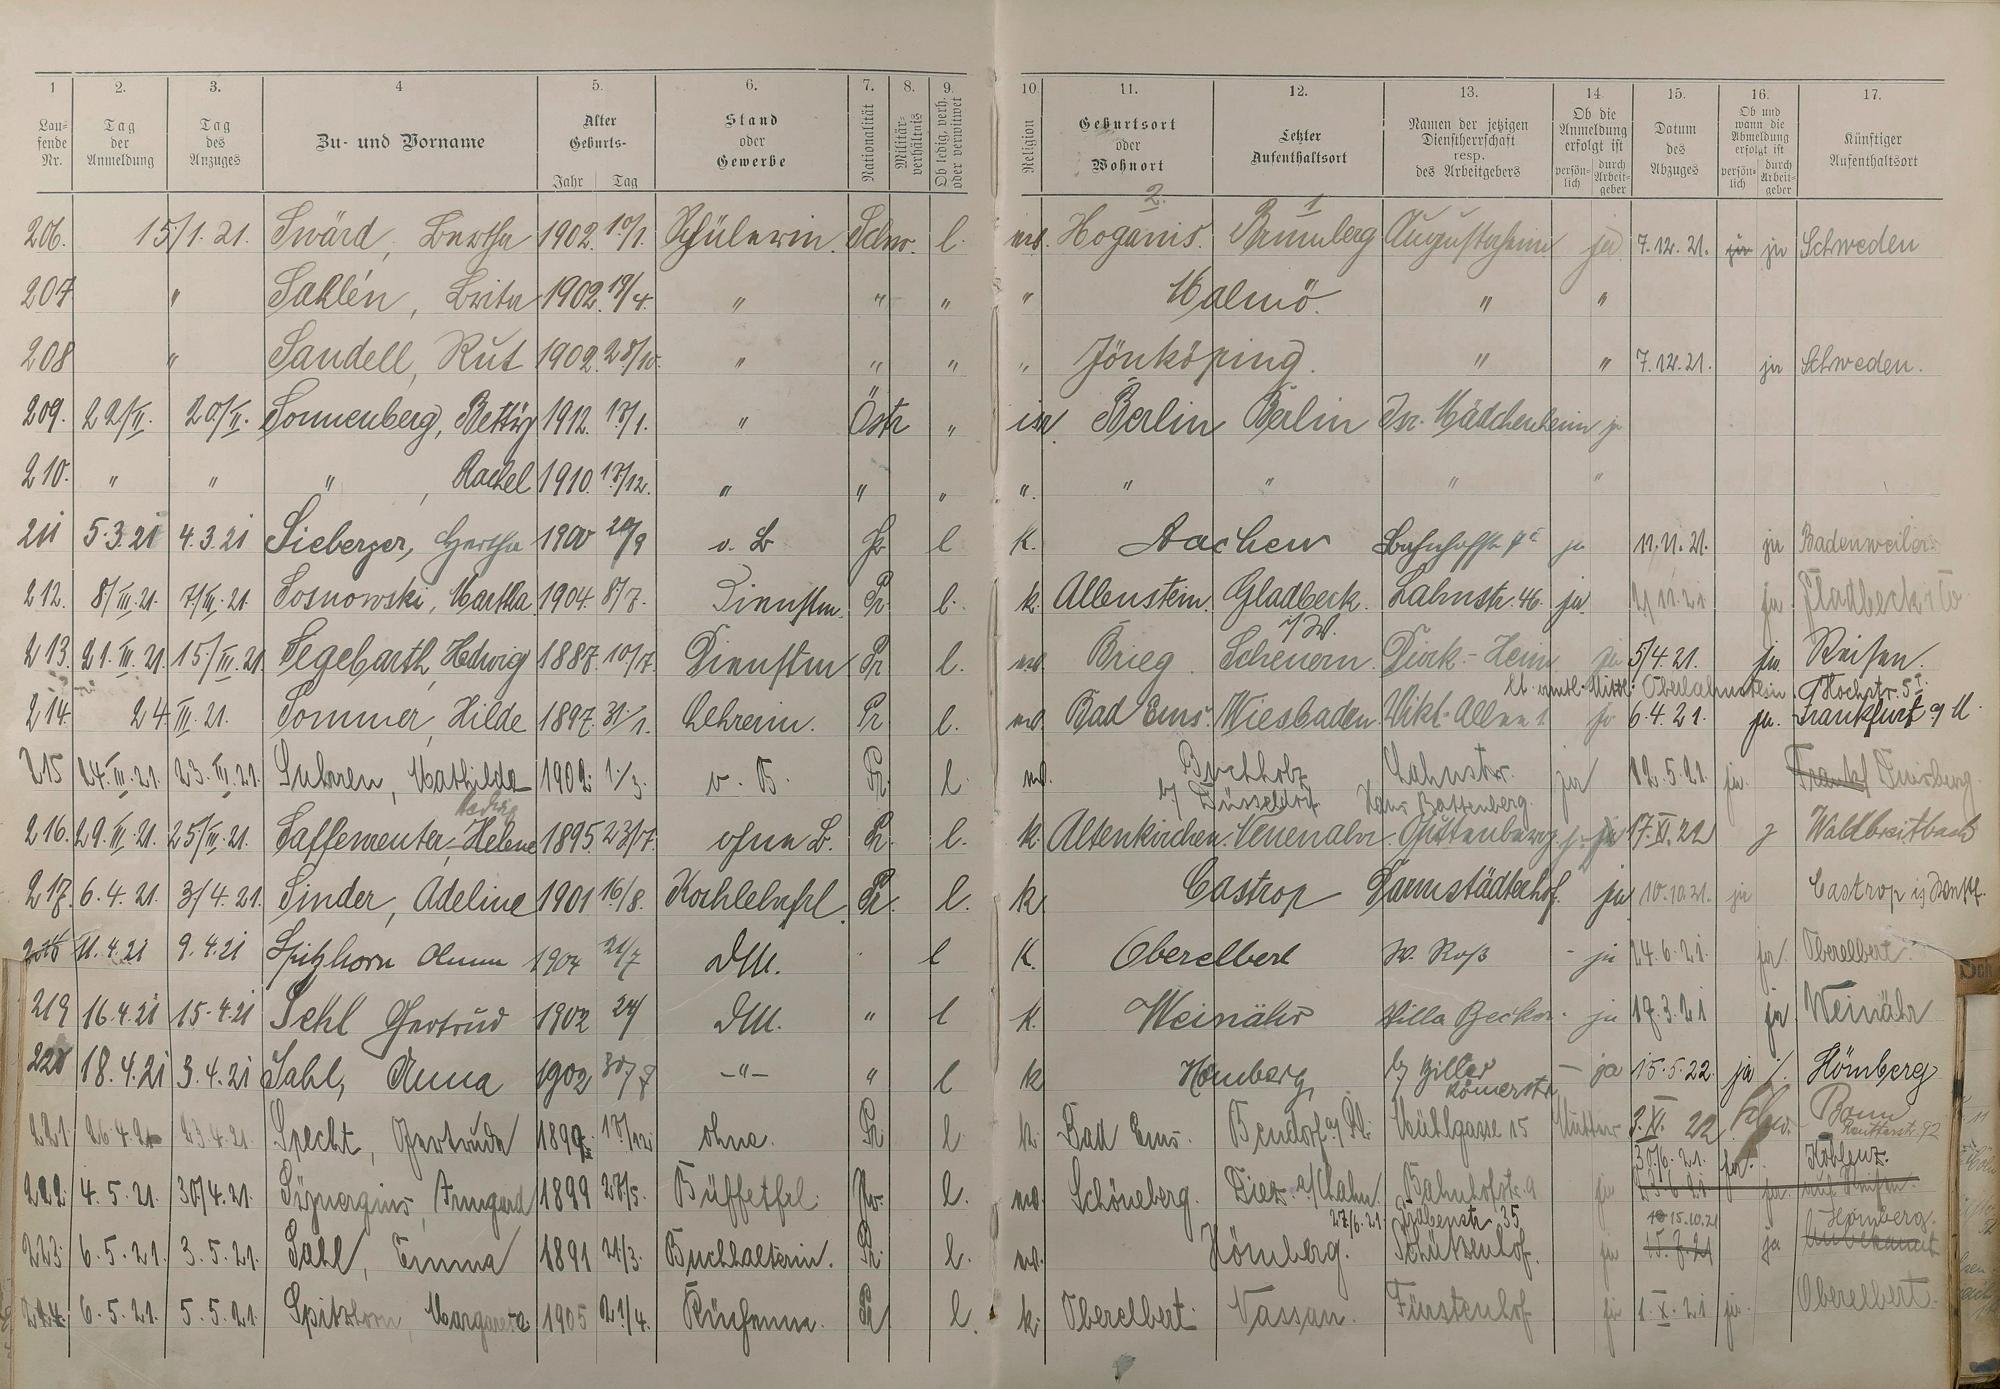 1 2. 3. 4 5. 6. 7. 8. 9. 10 11. 12. 13. 14 15. 16. 17.
Lau-
fende
Nr.
Tag
der
Anmeldung
Tag
des
Anzuges
Zu- und Vorname
Alter
Geburts-
Jahr Tag
Stand
oder
Gewerbe
Nationalität
Militär-
verhältnis
Ob ledig, verh.
oder verwitwet
Religion
Geburtsort
oder
Wohnort
Letzter
Aufenthaltsort
Namen der jetzigen
Dienstherrschaft
resp.
des Arbeitgebers
Ob die
Anmeldung
erfolgt ist
persön-
lich
durch
Arbeit-
geber
Datum
des
Abzuges
Ob und
wann die
Abmeldung
erfolgt ist
persön-
lich
durch
Arbeit-
geber
Künftiger
Aufenthaltsort
2. 1
206. 15/1. 21. Swärd, Bertha 1902. Schülerin. Schw. l. Höganäs. Augustaheim ja 7.12.21. ja ja Schweden
207 " Sahlén, Brita 1902. 19/4. " " " " Malmö. " "
208 " Sandell, Rut 1902. 28/10. " " " " Jönköping. " " 7.12.21. ja Schweden.
209. 22/II. 20/II. Sonnenberg, Betty 1912. 13/1. " Östr " isr. Berlin Berlin Isr. Mädchenheim ja
210. " " " , Rachel 1910. 13/12. " " " ". " " " "
211 5.3.21 4.3.21 Sieberger, Hertha 1900 o. B Pr l K. Aachen Bahnhofstr ja 11.11.21. ja Badenweiler
212. 8/III.21. 7/III.21. Sosnowski, Martha 1904. 8/7. Dienstm. Pr. l. k. Allenstein. Gladbeck i/W. Lahnstr. 46. ja ja Gladbeck
213. 21.III.21. 15/III.21. Segebarth, Hedwig 1887. 10/7. Dienstm Pr l. ev. Brieg Scheuern. Heim ja 5/4.21. ja Reisen.
Oberlahnstein, Hochstr. 5
214 24.III.21. Sommer, Hilde 1897. 31/1. Lehrerin. Pr l. ev. Bad Ems. Wiesbaden. Vikt. Allee 1. ja 6.4.21. ja. Frankfurt a/M.
215 24.III.21. 23.III.21. Suhren, Mathilde 1902. 1./3. o. B. Pr. l ev. Buchholz b/ Düsseldorf Lahnstr. ja 12.5.21. ja. Frankf Duisberg.
Hedwig Haus Battenberg.
216. 29.III.21. 25/III.21. Saffenreuter, Helene 1895. 23/7. ohne B. Pr. l. k. Altenkirchen. Neuenahr. Guttenberg ja 17.XI.22 Waldbreitbach
217. 6.4.21. 3/4.21. Sinder, Adeline 1901 16/8. Kochlehrfrl. Pr. l. k. Castrop Darmstädterhof. ja 10.10.21. ja Castrop
218 11.4.21 9.4.21 Spitzhorn Anna 1904 21/7 DM. l K. Oberelbert W. Roß - ja 24.6.21. ja. Oberelbert.
219 16.4.21 15.4.21 Sehl Gertrud 1902 DM. " l K. Weinähr Villa Becker. ja 17.3.21 ja Weinähr
220 18.4.21 3.4.21 Sahl, Anna 1902 30/7 –"– " l k Hömberg b/ Giller Römerstr — ja 15.5.22 ja /. Hömberg
221. 26.4.21 23.4.21. Specht, Gertrude 1899. 13/12. ohne. Pr. l k. Bad Ems. Bendorf a/Rh. Mühlgasse 15 Mutter 2.XI.22 Bonn Reuterstr. 92
30/6.21. ja. Koblenz.
222. 4.5.21. 30/4.21. Armgard 1899 28/5. Büffetfrl. Pr. l. ev. Schöneberg. Diez a/Lahn. Bahnhofstr. 9 ja 23.6.21 ja. auf Reisen.
27/6.21. Grabenstr. 35 15.10.21 Hömberg.
223. 6.5.21. 3.5.21. Sahl, Emma 1891 21/3. Buchhalterin. Pr. l. ev. Hömberg. Schützenhof. ja 15.7.21 ja Unbekannt
224. 6.5.21. 5.5.21. Spitzhorn, Margareta. 1905 21/4. Küchenm. Pr l. k. Oberelbert. Nassau. Fürstenhof ja 1.X.21 ja. Oberelbert.